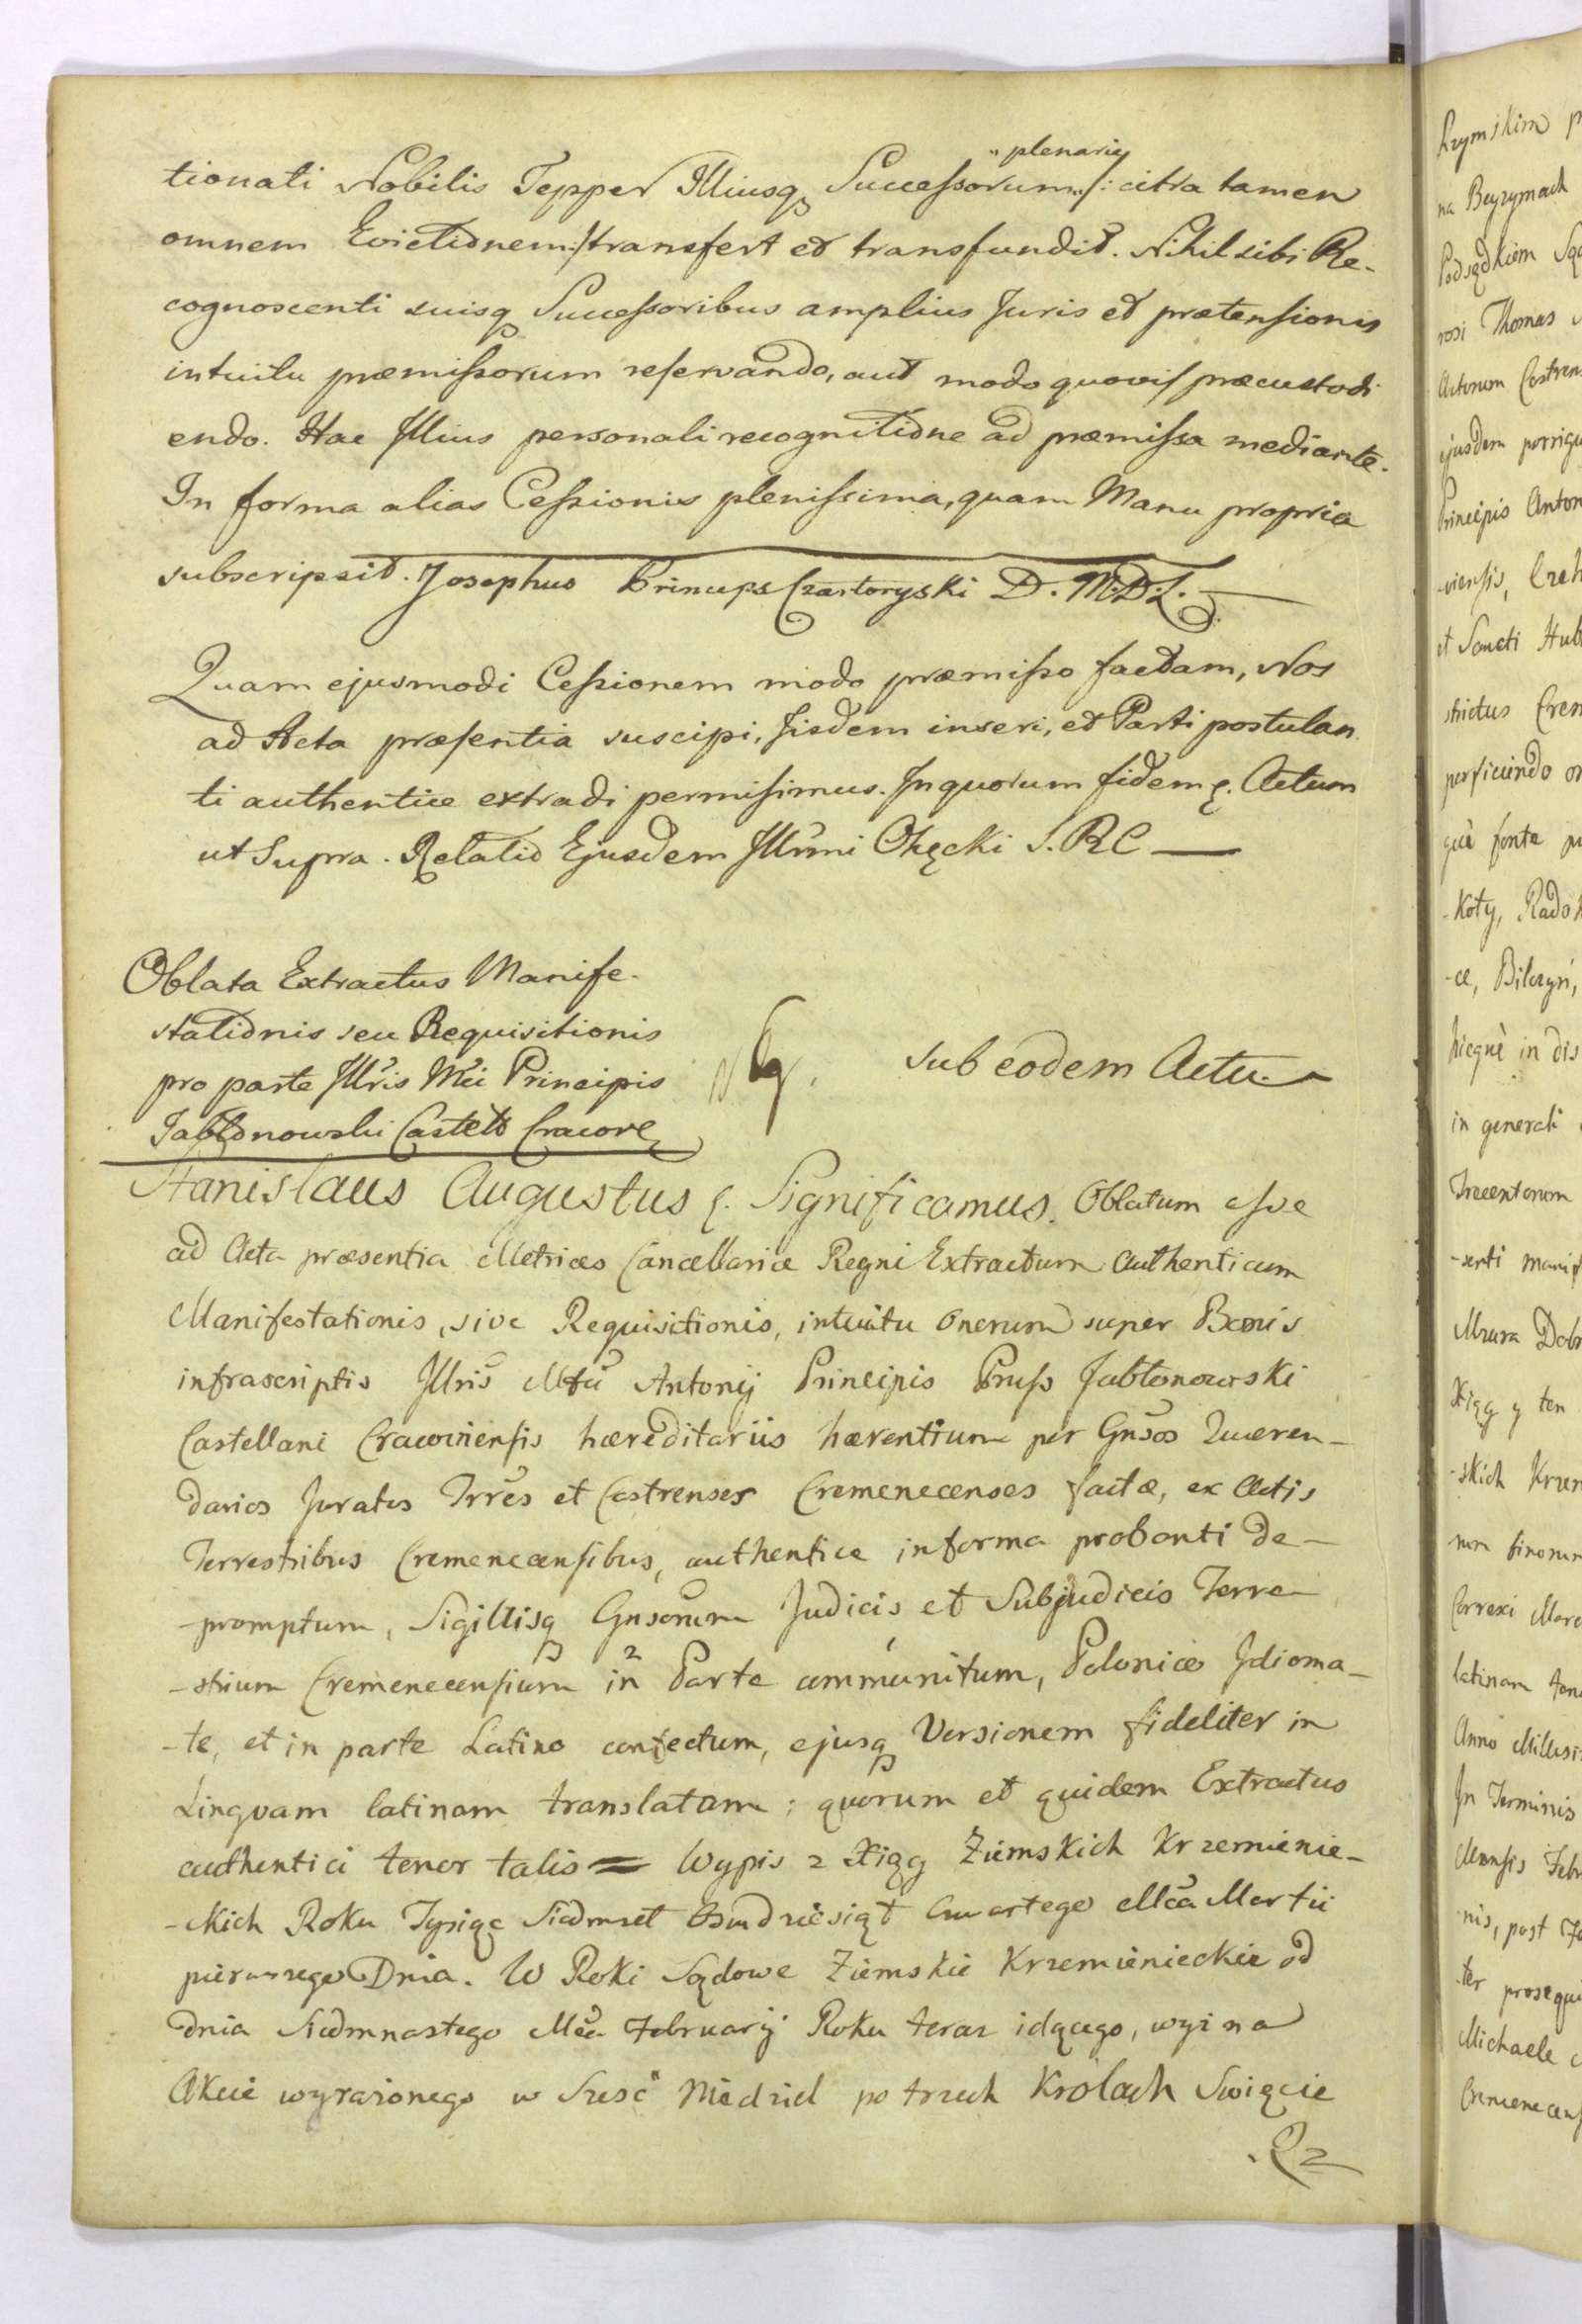 tionati Nobilis Tepper Illiusq Successorum „plenarie„ /: citra tamen
omnem Evictionem :/ transfert et transfundit. Nihil sibi Re-
cognoscenti suisq Successoribus amplius Juris et prætensionis
intuitu præmissorum reservando, aut modo quovis præcustodi
endo. Hac Illius personali recognitione ad præmissa mediante.
In forma alias Cessionis plenissima, quam Manu propria
subscripsit. Josephus Princeps Czartoryski D. M.D.L.
Quam ejusmodi Cessionem modo præmisso factam, Nos
ad Acta præsentia suscipi, Iisdem inseri, et Parti postulan
ti authentice extradi permisimus. In quorum fidem &. Actum
ut Supra. Relatio Ejusdem Illmi Okęcki S. R C
Oblata Extractus Manife-
stationis seu Requisitionis
pro parte Illris Mci Principis
Jabłonowski Castell Cracov
sub eodem Actu
Stanislaus Augustus &. Significamus. Oblatum esse
ad Acta præsentia Metrices Cancellariæ Regni Extractum Authenticum
Manifestationis, sive Requisitionis, intuitu Onerum super Bonis
infrascriptis Illris Antonij Principis Pruss Jabłonowski
Castellani Cracoviensis hæreditariis hærentium per Gnsos Quæren-
darios Juratos Trres et Castrenses Cremenecenses factæ, ex Actis
Terrestribus Cremenecensibus, authentice in forma probanti de-
-promptum, Sigillisq Gnsorum Judicis et Subjudicis Terre
-strium Cremenecensium in Parte communitum, Polonico Idioma-
-te, et in parte Latino confectum, ejusq Versionem fideliter in
Linguam latinam translatam; quorum et quidem Extractus
authentici tenor talis = Wypis z Xiąg Ziemskich Krzemienie-
-ckich Roku Tysiąc Siedmset Osmdziesiąt Czwartego Mca Martii
pierwszego Dnia. W Roki Sądowe Ziemskie Krzemienieckie od
dnia Siedmnastego Mca Februarij Roku teraz idącego, wyż na
Akcie wyrażonego w Szesć Niedziel po trzech Krolach Swięcie
Rz
Rzymskim
na Beyzymach
Podsędkiem
rosi Thomas
Actorum
ejusdem
Principis Anton
-viensis,
et Sancti Hub
strictus Crem
perficiendo
què fonte
-koty,
-ce, Bilczyń,
hicquè in dis
in generali
Trecentorum
-senti manif
Mrura Dobr
Xiąg y ten
-skich Krzem
Correxi
latinam
Anno Millesi
In Terminis
Mensis Febr
-nis, post
-ter prosequi
Michaele
Cremenecens